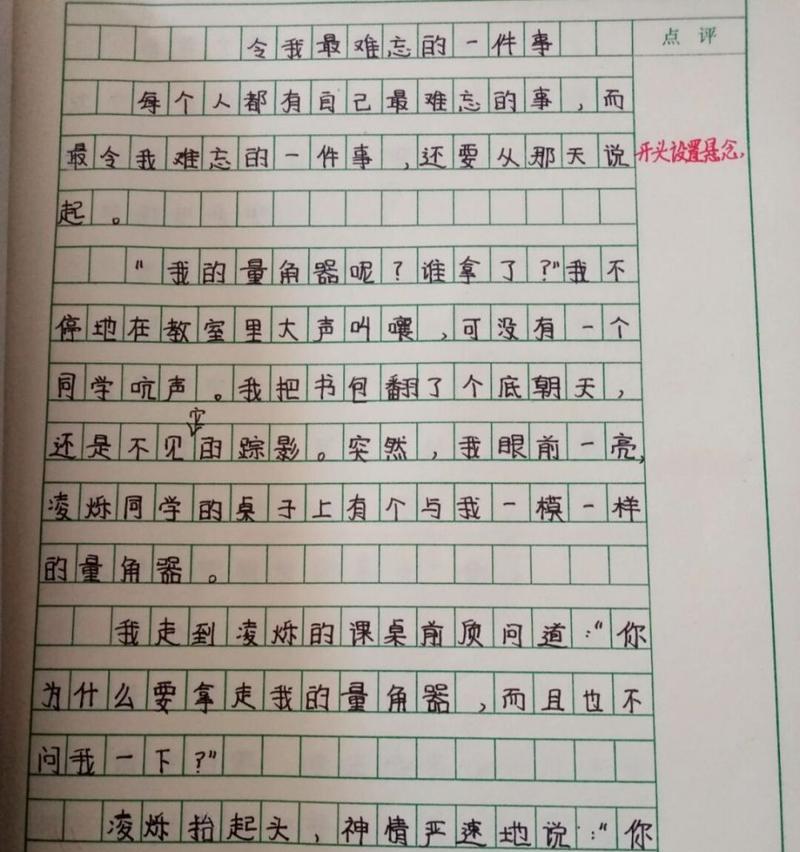 令我最难忘的一件事
点评
每个人都有自己最难忘的事，而
最令我难忘的一件事，还要从那天说
开头设置悬念，
起。
“我的量角器呢？谁拿了？”我不
停地在教室里大声叫嚷，可没有一个
同学吭声。我把书包翻了个底朝天，
还是不见它的踪影。突然，我眼前一亮，
凌烁同学的桌子上有个与我一模一样
的量角器。
我走到凌烁的课桌前质问道：“你
为什么要拿走我的量角器，而且也不
问我一下？”
凌烁抬起头，神情严速地说：“你